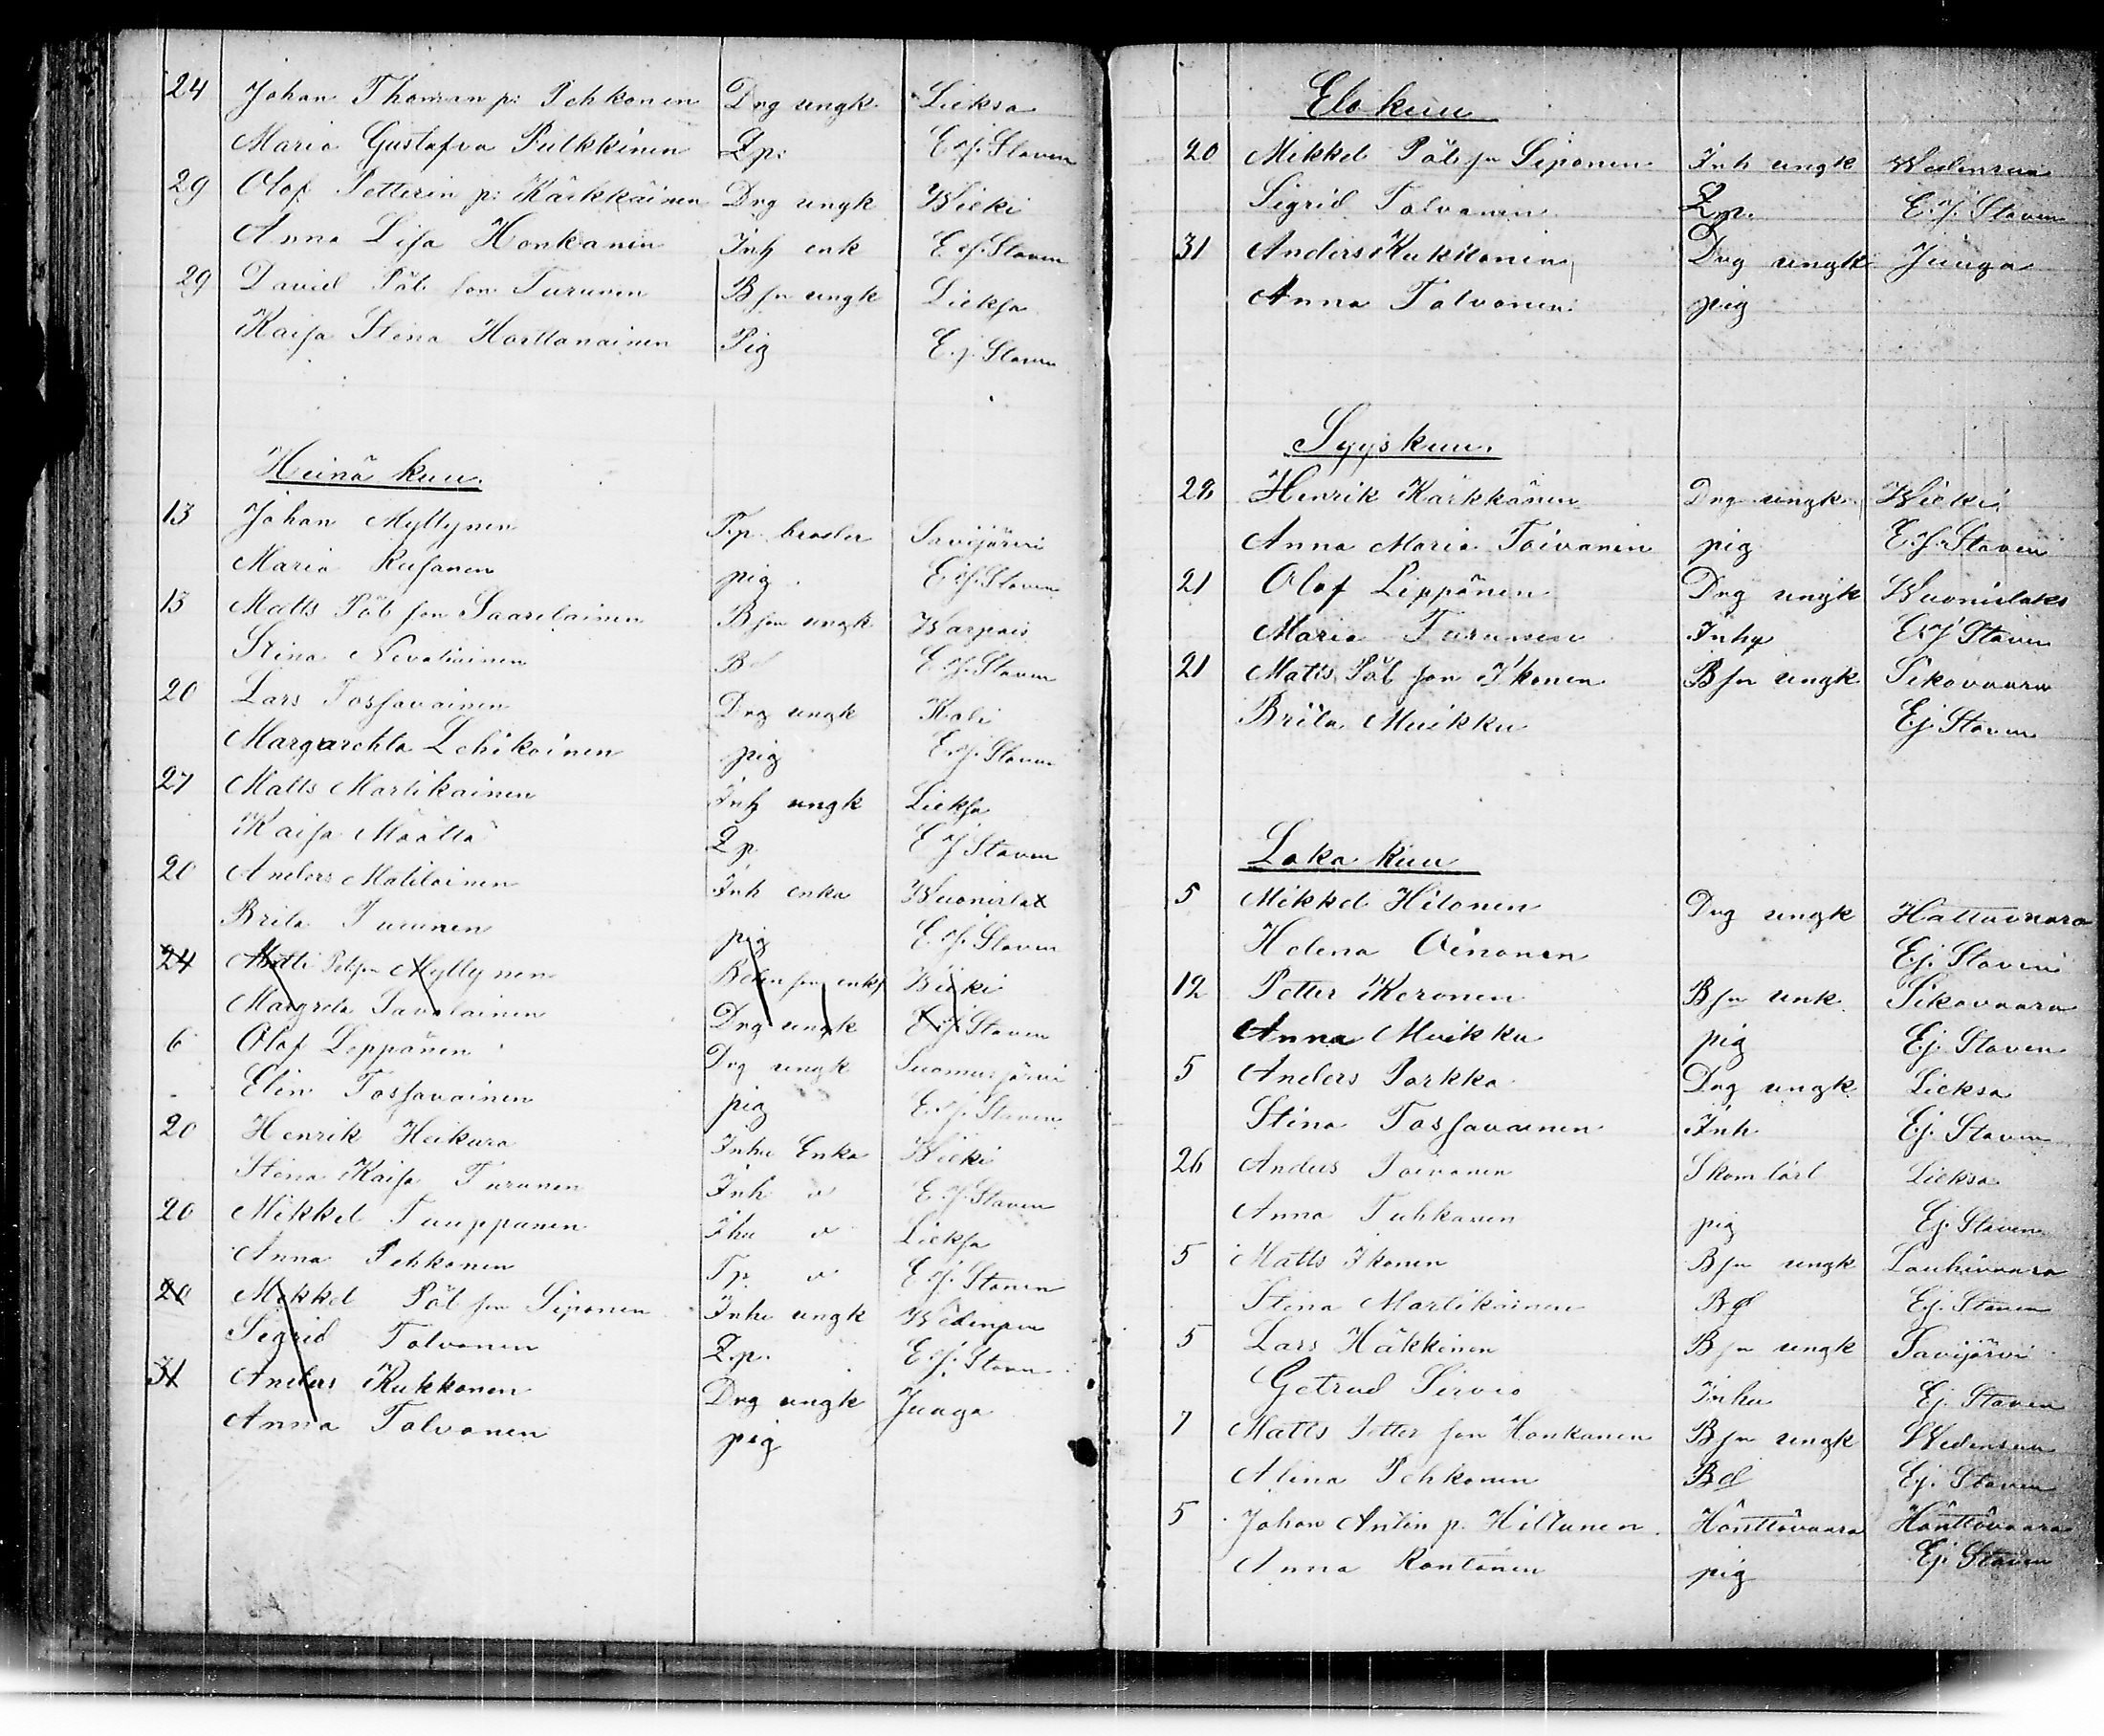 24 Johan Thoman p: Pehkonen Drg ungk Lieksa
Maria Gustafva Pulkkinen Lp: Ej. Staven
29 Olof Petterin p: Käikkäinen Drg ungk Wieki
Anna Lisa Honkanen Inh enk Ej. Staven
29 David Påb son Turunen Bsn ungk Lieksa
Kaisa Stina Horttanainen Pig Ej. Staven
Heinä kuu.
13 Johan Myllynen Tp. broder Savijärvi
Maria Rusanen pig Ej. Staven
13 Matts Påb son Saarelainen Bson ungk Warpais
Stina Nevalainen Bd Ej. Staven
20 Lars Tossavainen Drg ungk Koli
Margarehta Lehikoinen pig Ej. Staven
27 Matts Martikainen Inh ungk Lieksa
Kaisa Määttä Lp. Ej Staven
20 Anders Matilainen Inh enka Wuonislax
Brita Turunen pig Ej. Staven
24 Matti Petson Myllynen enk Wieki
Margreta Savolainen Drg ungk Ej Staven
6 Olof Leppänen Drg ungk Suomusjärvi
Elin Tossavainen pig Ej. Staven
20 Henrik Heikura Inhu Enka Wieki
Stina Kaisa Turunen Inh v Ej. Staven
20 Mikkel Tuuppanen Ihu v Lieksa
Anna Pehkonen Tp. v Ej. Staven
20 Mikkel Påb son Siponen Inhu ungk
Sigrid Tolvanen Lp. Ej. Staven
31 Anders Kukkonen Drg ungk Juuga
Anna Tolvanen pig
Elo kuu
20 Mikkel Påb sn Siponen Inh ungk Wedensuu
Sigrid Tolvanen Lp. Ej. Staven
31 Anders Kukkonen Drg ungk Juuga
Anna Tolvanen pig
Syys kuu.
28 Henrik Kärkkänen Drg ungk Wieki
Anna Maria Toivanen pig Ej. Staven
21 Olof Lippönen Drg ungk Wuonislaks
Maria Turunen Inhp Ej Staven
21 Matts Påb son Ikonen Bsn ungk Sikovaara
Brita Muikku Ej Staven
Loka kuu
5 Mikkel Hilonen Drg ungk Hattuvaara
Helena Oinonen Ej. Staven
12 Petter Keronen Bsn unk. Sikovaara
Anna Muikku pig Ej. Staven
5 Anders Parkka Drg ungk Lieksa
Stina Tossavainen Inh Ej. Staven
26 Anders Toivanen Skom lärl Lieksa
Anna Tuhkanen pig Ej. Staven
5 Matts Ikonen Bsn ungk Louhivaara
Stina Martikainen Bd Ej. Staven
5 Lars Häkkinen Bsn ungk Savijärvi
Getrud Sirvio Inhu Ej Staven
7 Matts Petter son Honkanen Bsn ungk Wedensuu
Alina Pehkonen Bd Ej. Staven
5 Johan Antin p. Hiltunen Hönttövaara Hönttövaara
Anna Rontonen pig Ej. Staven